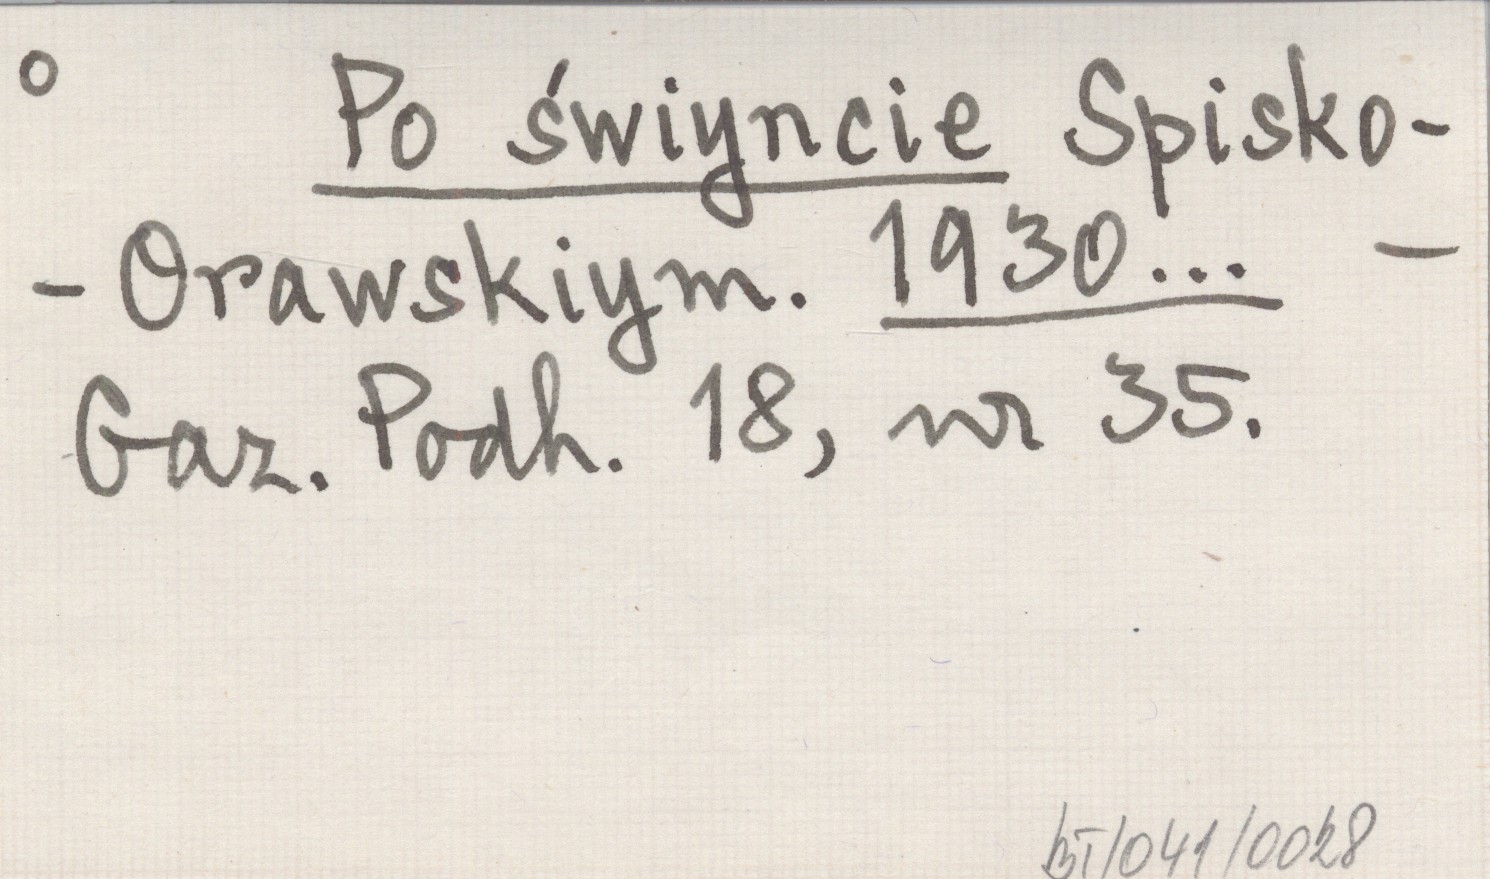 o Po świyncie Spisko-
- Orawskiym. 1930... -
Gaz. Podh. 18, nr 35.
BT/041/0028